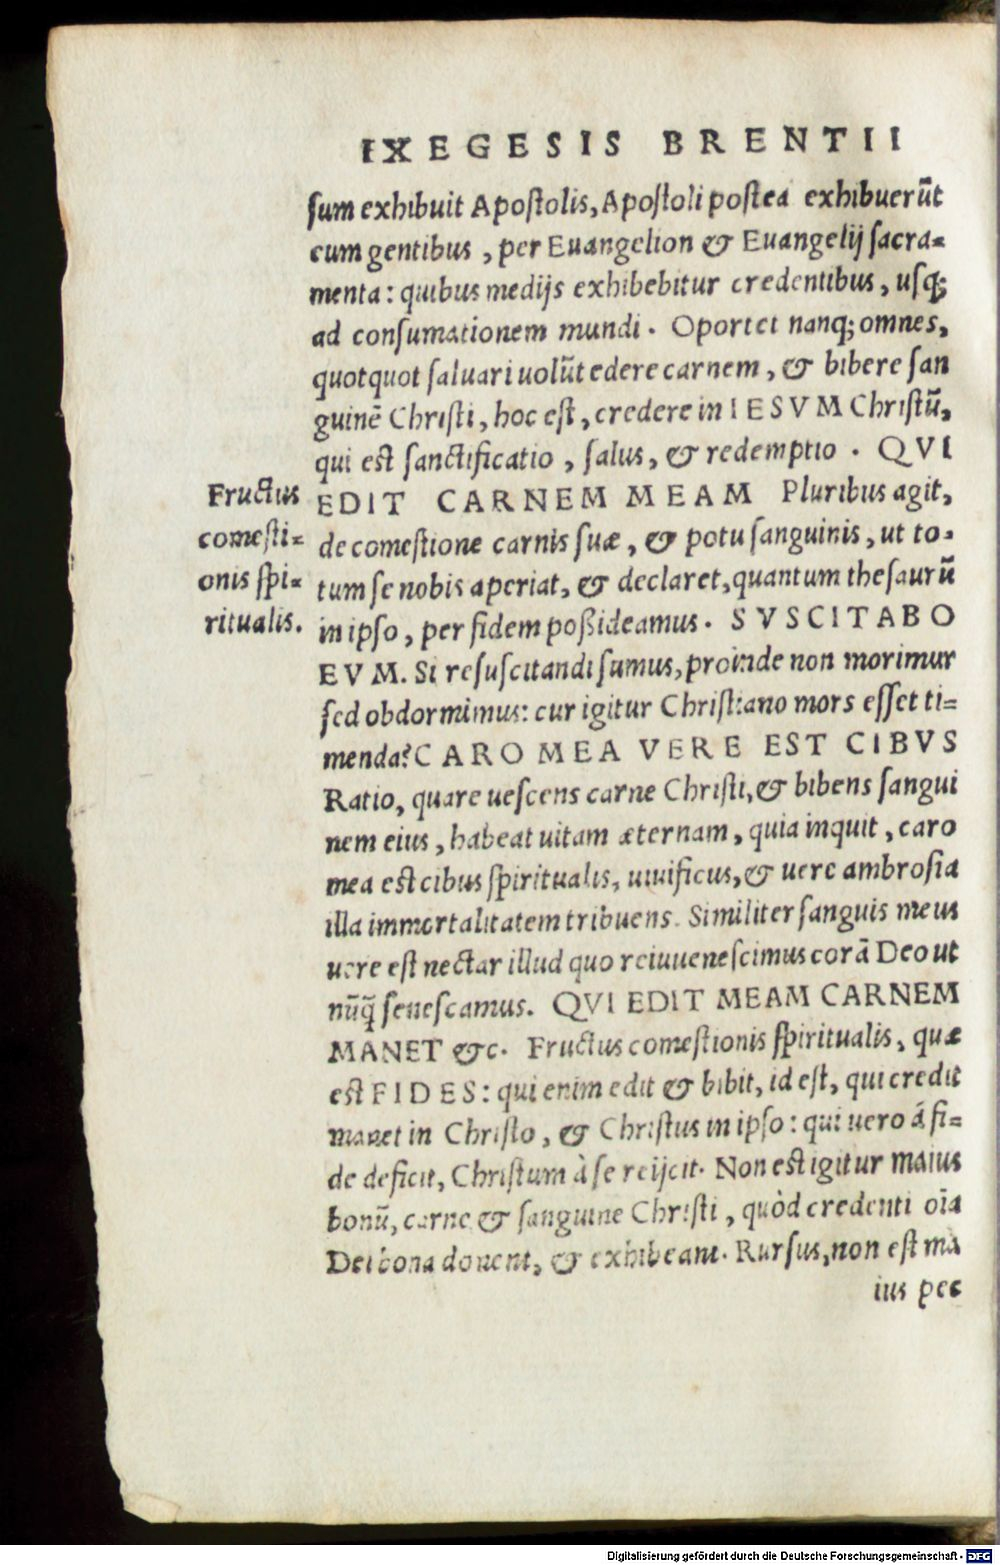 IXEGESIS BRENTII
sum exhibuit Apostolis, Apostoli postea exhibuerũt
cum gentibus, per Euangelion & Euangelij sacra=
menta: quibus medijs exhibebitur credentibus, usq;
ad consumationem mundi. Oportet nanq; omnes,
quotquot saluari uolũt edere carnem, & bibere san
guinẽ Christi, hoc est, credere in IESVM Christũ,
qui est sanctificatio, salus, & redemptio. QVI
EDIT CARNEM MEAM Pluribus agit,
de comestione carnis suæ, & potu sanguinis, ut to=
tum se nobis aperiat, & declaret, quantum thesaurũ
in ipso, per fidem poßideamus. SVSCITABO
EVM. Si resuscitandi sumus, proinde non morimur
sed obdormimus: cur igitur Christiano mors esset ti=
menda? CARO MEA VERE EST CIBVS
Ratio, quare uescens carne Christi, & bibens sangui
nem eius, habeat uitam æternam, quia inquit, caro
mea est cibus spiritualis, uiuificus, & uere ambrosia
illa immortalitatem tribuens. Similiter sanguis meus
uere est nectar illud quo reiuuenescimus corã Deo ut
nũq̃ senescamus. QVI EDIT MEAM CARNEM
MANET &c. Fructus comestionis spiritualis, quæ
est FIDES: qui enim edit & bibit, id est, qui credit
manet in Christo, & Christus in ipso: qui uero á fi=
de deficit, Christum à se reijcit. Non est igitur maius
bonũ, carne & sanguine Christi, quòd credenti oĩa
Dei bona donent, & exhibeant. Rursus, non est ma
ius pec
Fructus
comesti=
onis spi=
ritualis.
Digitalisierung gefördert durch die Deutsche Forschungsgemeinschaft - DFG